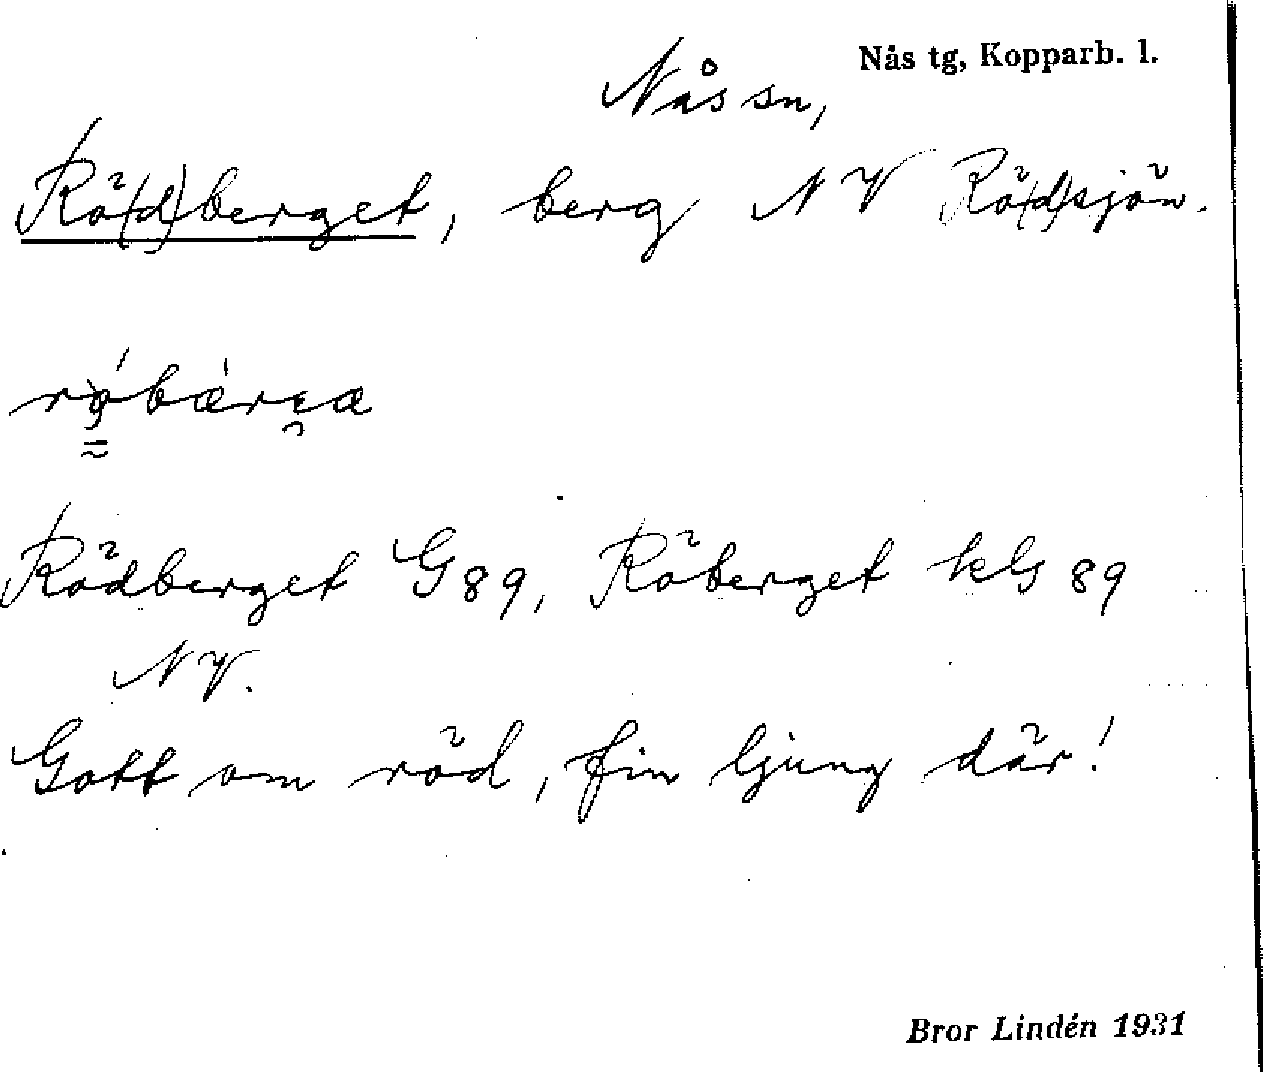 Nås tg, Kopparb. l.
Nås sn,
Rö(d)berget, berg NV Rö(d)sjön.
Rödberget G89, Röberget kG 89
NV.
Gott om röd, fin ljung där!
Bror Lindén 1931